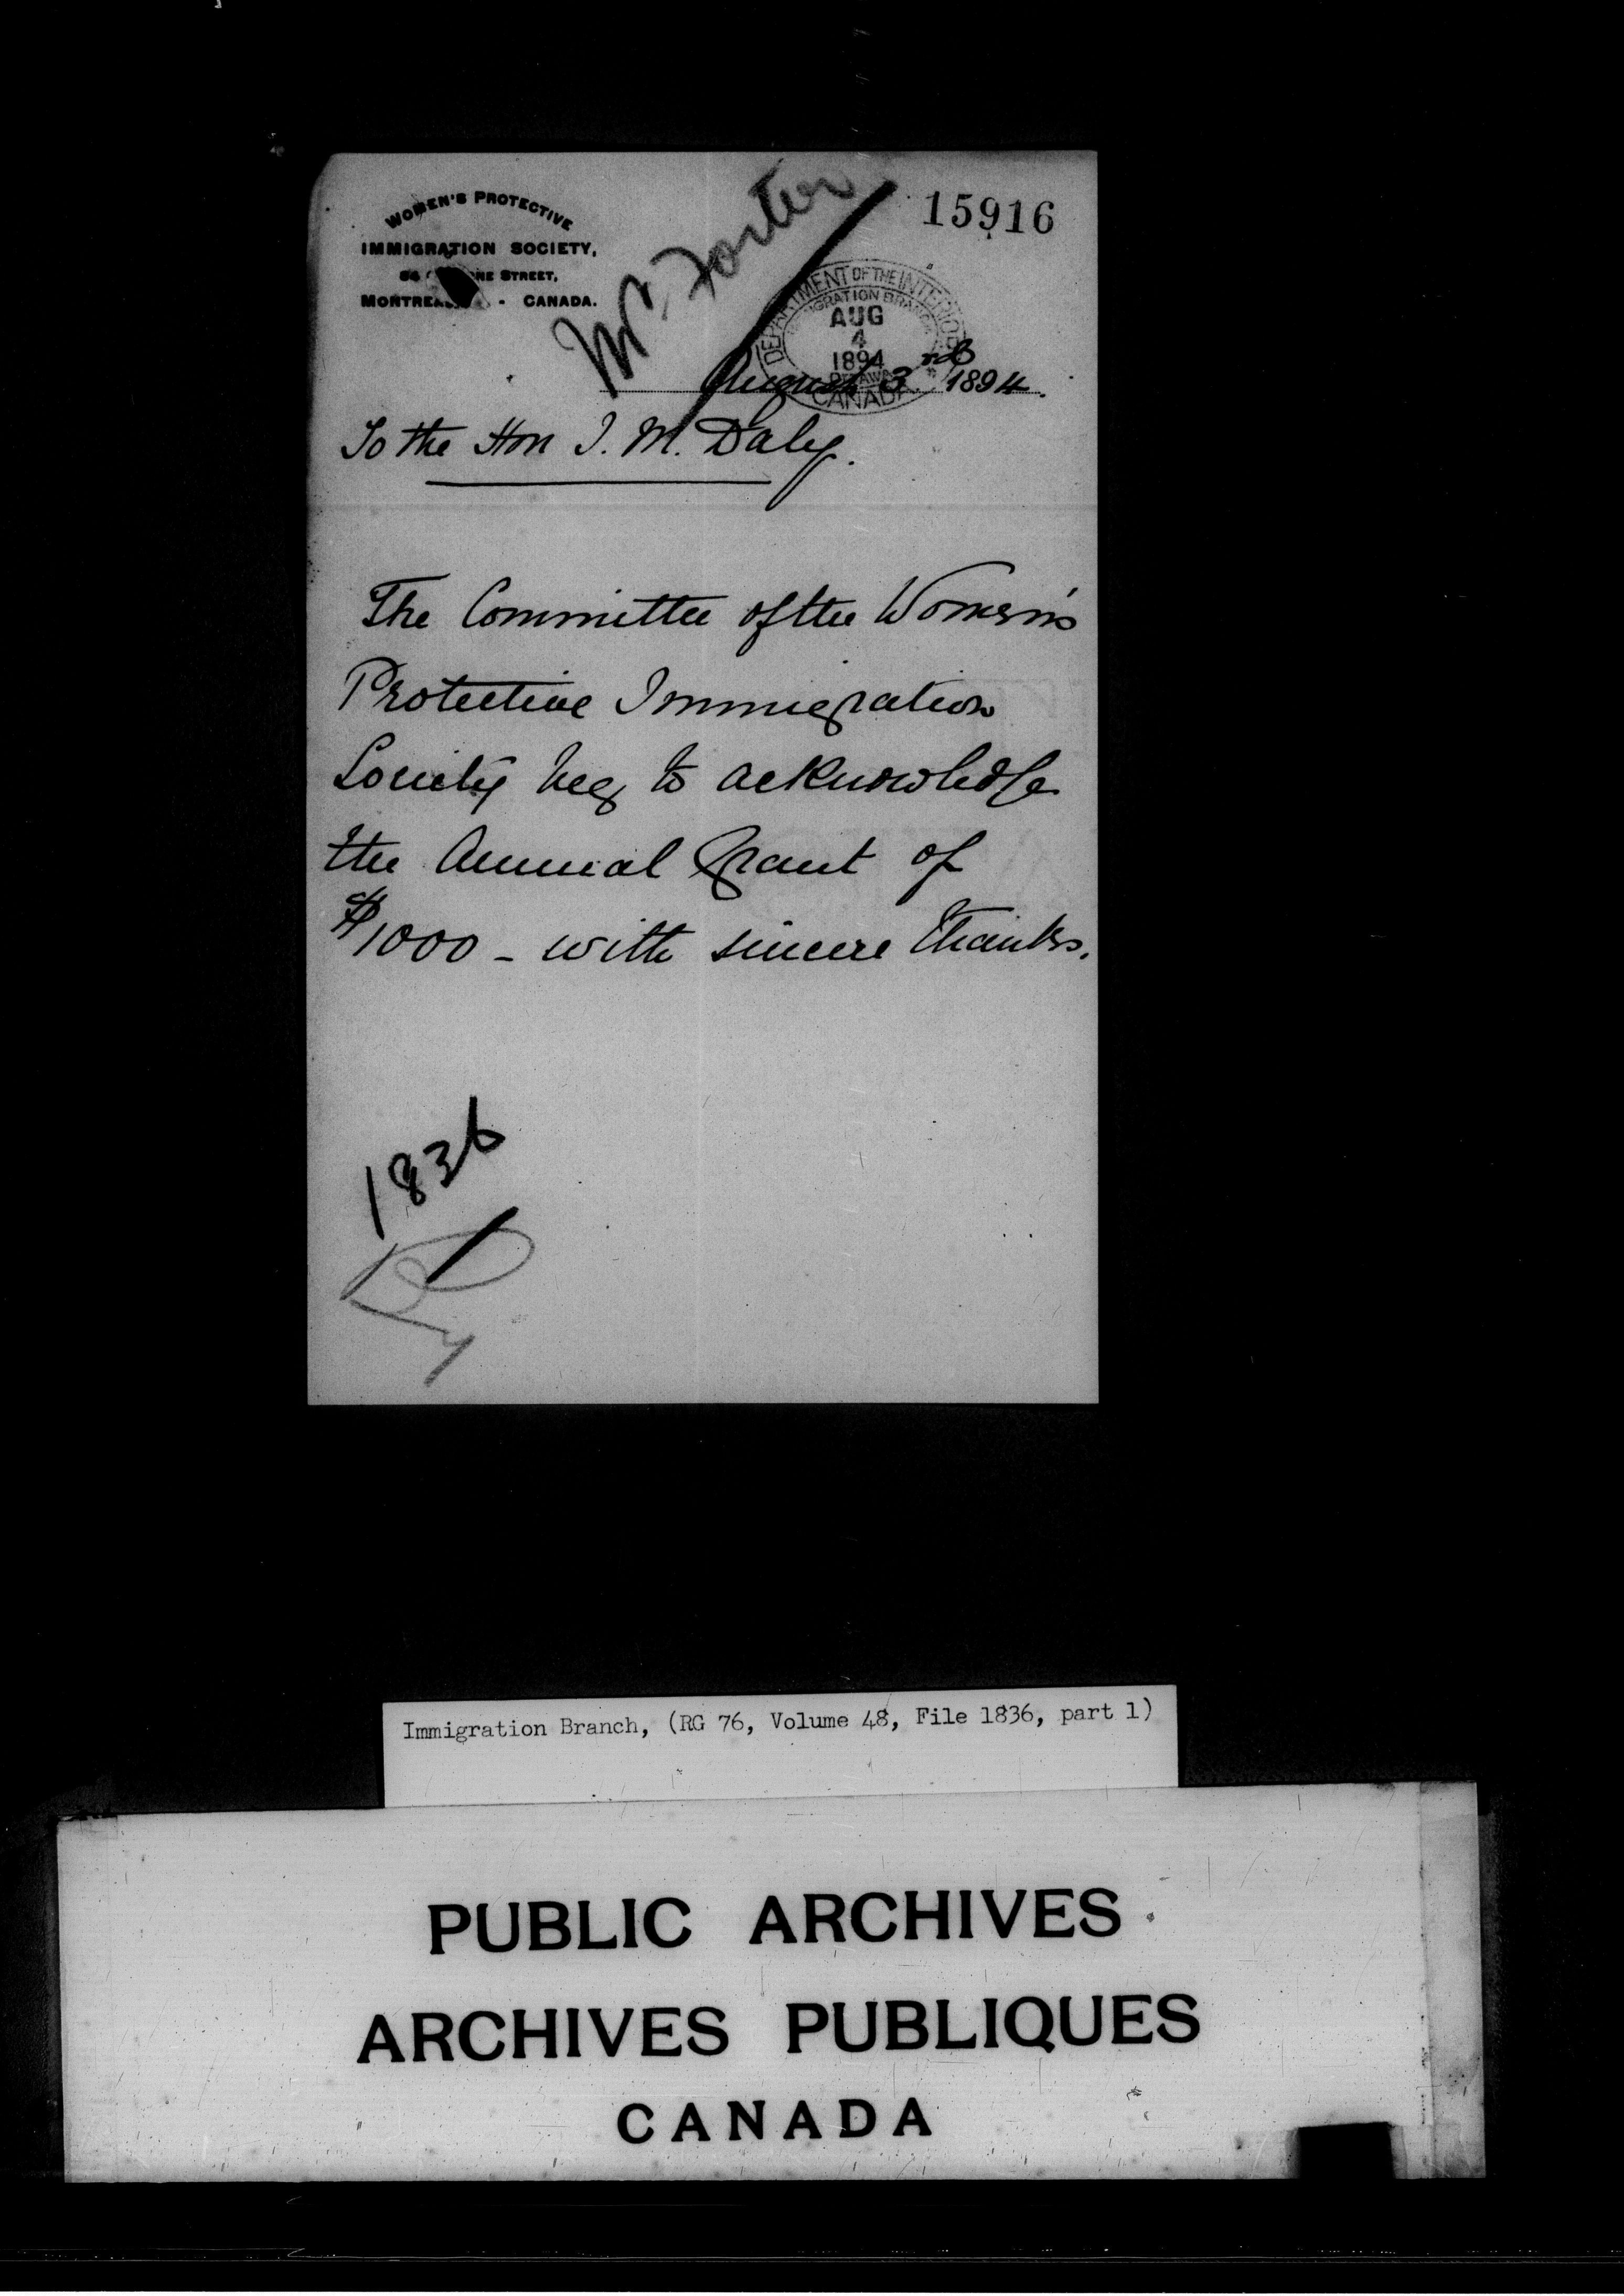 WOMEN'S PROTECTIVE
IMMIGRATION SOCIETY,
STREET,
MONTREAL - CANADA.
Mr. Fortier
15916
DEPARTMENT OF THE INTERIOR
IMMIGRATION BRANCH
AUG
4
1894
OTTAWA
CANADA
August 3rd 1894.
To the Hon T. M. Daly.
The Committee of the Women's
Protective Immigration
Society beg to acknowledge
the Annual Grant of
$1000 - with sincere thanks.
1836
Immigration Branch, (RG 76, Volume 48, File 1836, part 1)
PUBLIC ARCHIVES
ARCHIVES PUBLIQUES
CANADA